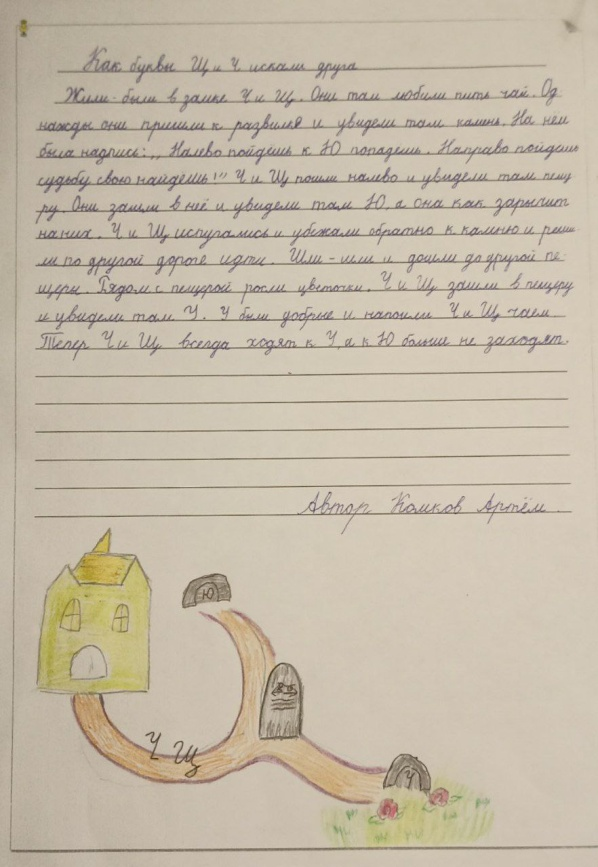 Как буквы Щ и Ч искали друга
Жили-были в замке Ч и Щ. Они там любили пить чай. Од
нажды они пришли к развилке и увидели там камень. На нём
была надпись: „Налево пойдёшь к Ю попадешь. Направо пойдешь
судьбу свою найдешь!" Ч и Щ пошли налево и увидели там пещ
ру. Они зашли в неё и увидели там Ю, а она как зарычит
на них. Ч и Щ испугались и убежали обратно к камню и реши
ли по другой дороге идти. Шли-шли и дошли до другой пе-
щеры. Рядом с пещерой росли цветочки. Ч и Щ зашли в пещеру
и увидели там У. У были добрые и напоили Ч и Щ чаем
Тепер Ч и Щ всегда ходят к У, а к Ю больше не заходят.
Автор Комков Артём.
Ю
Ч Щ
У